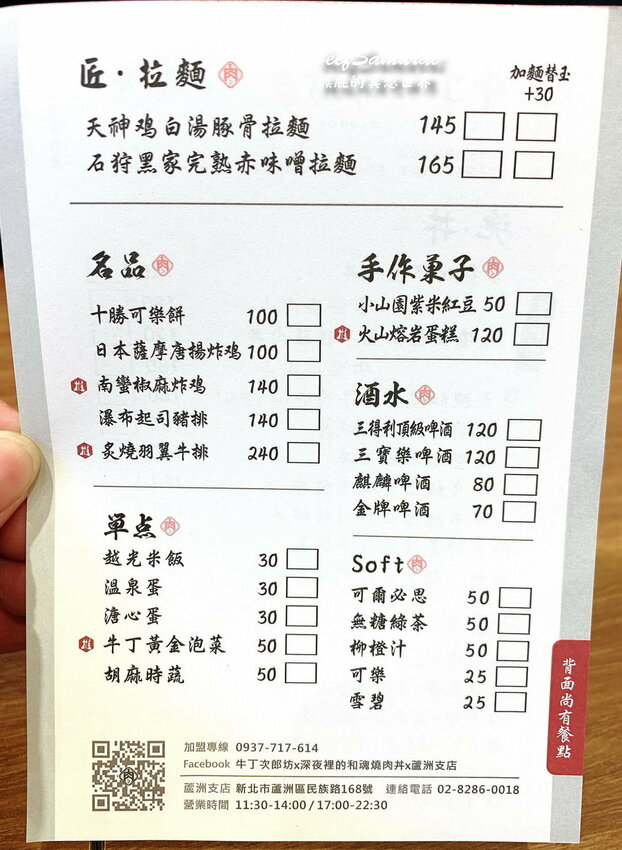 匠·拉麵
加麵替玉
+30
天神鸡白湯豚骨拉麵 145
石狩黑家完熟赤味噌拉麵 165
名品
十勝可樂餅 100
日本薩摩唐揚炸鸡 100
推 南蠻椒麻炸鸡 140
瀑布起司豬排 140
推 炙燒羽翼牛排 240
單点
越光米飯 30
温泉蛋 30
溏心蛋 30
推 牛丁黃金泡菜 50
胡麻時蔬 50
手作菓子
小山園紫米紅豆 50
推 火山熔岩蛋糕 120
酒水
三得利頂級啤酒 120
三寶樂啤酒 120
麒麟啤酒 80
金牌啤酒 70
Soft
可爾必思 50
無糖綠茶 50
柳橙汁 50
可樂 25
雪碧 25
背面尚有餐點
加盟專線 0937-717-614
Facebook 牛丁次郎坊x深夜裡的和魂燒肉丼x蘆洲支店
蘆洲支店 新北市蘆洲區民族路168號 連絡電話 02-8286-0018
營業時間 11:30-14:00 / 17:00-22:30